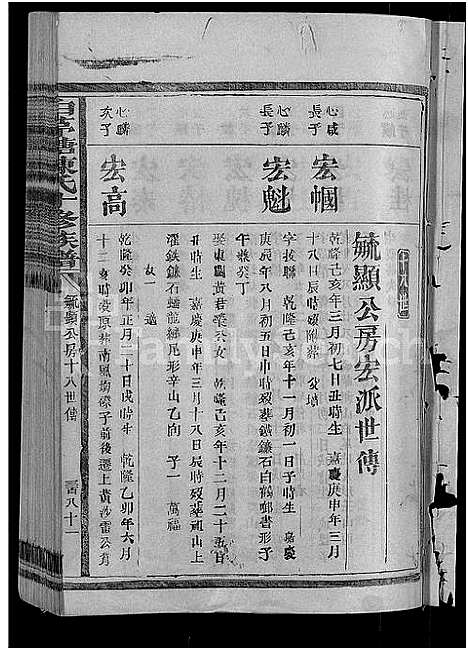 十八世
毓顯公房宏派世傳
心咸
長子
宏幗
乾隆己亥年三月初七日丑時生 嘉慶庚申年三月
十八日辰時歿附葬 父墳
心麟
長子
宏魁
字 聯 乾隆己亥年十一月初一日子時生 嘉慶
庚辰年八月初五日申時歿葬鐵鐮石白鶴 書形子
午 癸丁
娶東關黃君榮公女 乾隆己亥年十二月二十五日
丑時生 嘉慶庚申年三月十八日辰時歿葬祖山上
灌鐵鐮石蟠龍繞尾形辛山乙向 子一 萬福
女一 適
心麟
次子
宏高
乾隆癸卯年正月二十日戌時生 乾隆乙卯年六月
十二亥時歿 南風 子前後遷上黃沙雷公 
陳氏 修族譜
毓顯公房十八世傳
八十一